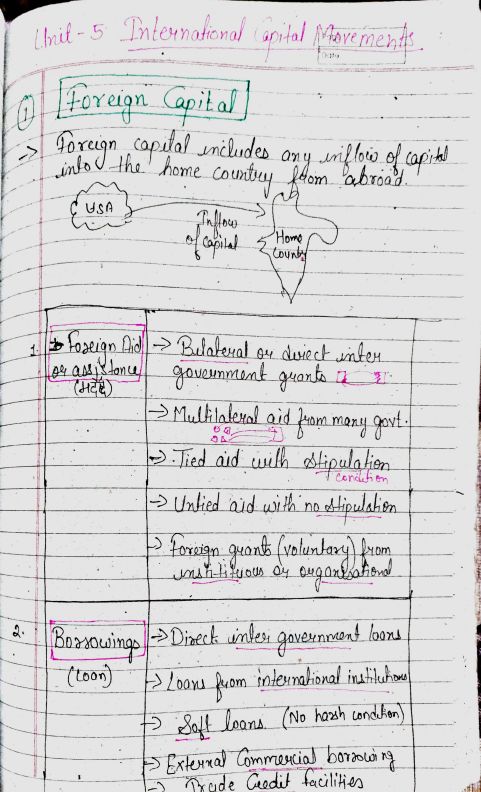 Unit - 5 International Capital Movements
① Foreign Capital
→ Foreign capital includes any inflow of capital
into the home country from abroad.
USA
Inflow
of capital
Home
Country
1. Foreign Aid
or assistance
(मदद)
→ Bilateral or direct inter
government grants
→ Multilateral aid from many govt.
→ Tied aid with stipulation
condition
→ Untied aid with no stipulation
→ Foreign grants (voluntary) from
institutions or organisational
2. Borrowings
(Loan)
→ Direct inter government loans
→ Loans from international institutions
→ Soft loans (No harsh condition)
→ External Commercial borrowing
→ Trade Credit facilities